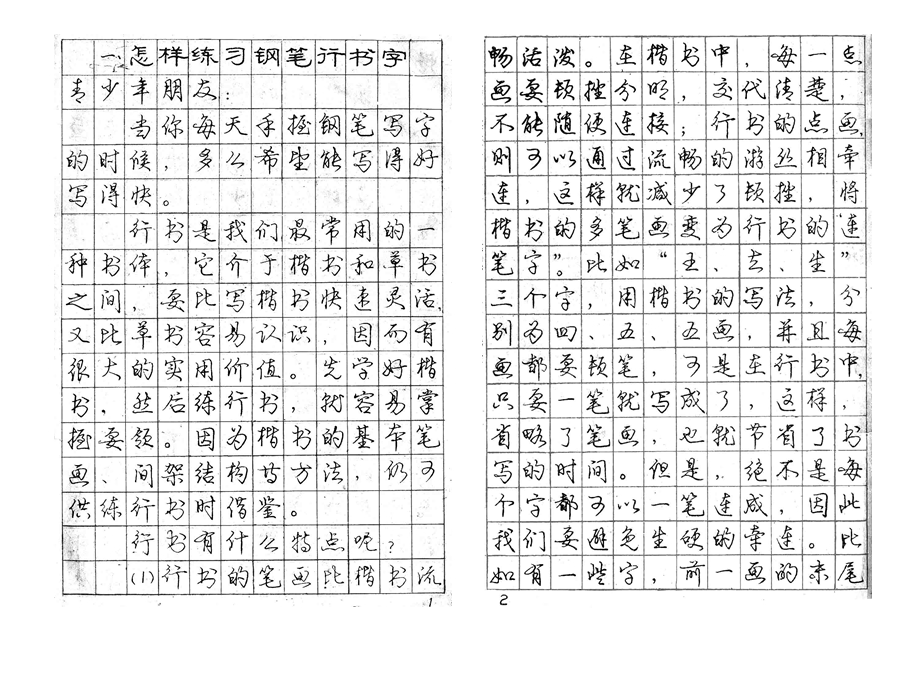 一、怎样练习钢笔行书字
青少年朋友：
当你每天手握钢笔写字
的时候，多么希望能写得好
写得快。
行书是我们最常用的一
种书体，它介于楷书和草书
之间，要比写楷书快速灵活，
又比草书容易认识，因而有
很大的实用价值。先学好楷
书，然后练行书，就容易掌
握要领。因为楷书的基本笔
画、间架结构等方法，仍可
供练行书时借鉴。
行书有什么特点呢？
⑴行书的笔画比楷书流
1
畅活泼。在楷书中，每一点
画要顿挫分明，交代清楚，
不能随便连接；行书的点画，
则可以通过流畅的游丝相牵
连，这样就减少了顿挫，将
楷书的多笔画变为行书的“连
笔字”。比如“王、去、生”
三个字，用楷书的写法，分
别为四、五、五画，并且每
画都要顿笔，可是在行书中，
只要一笔就写成了，这样，
省略了笔画，也就节省了书
写的时间。但是，绝不是每
个字都可以一笔连成，因此
我们要避免生硬的牵连。比
如有一些字，前一画的末尾
2